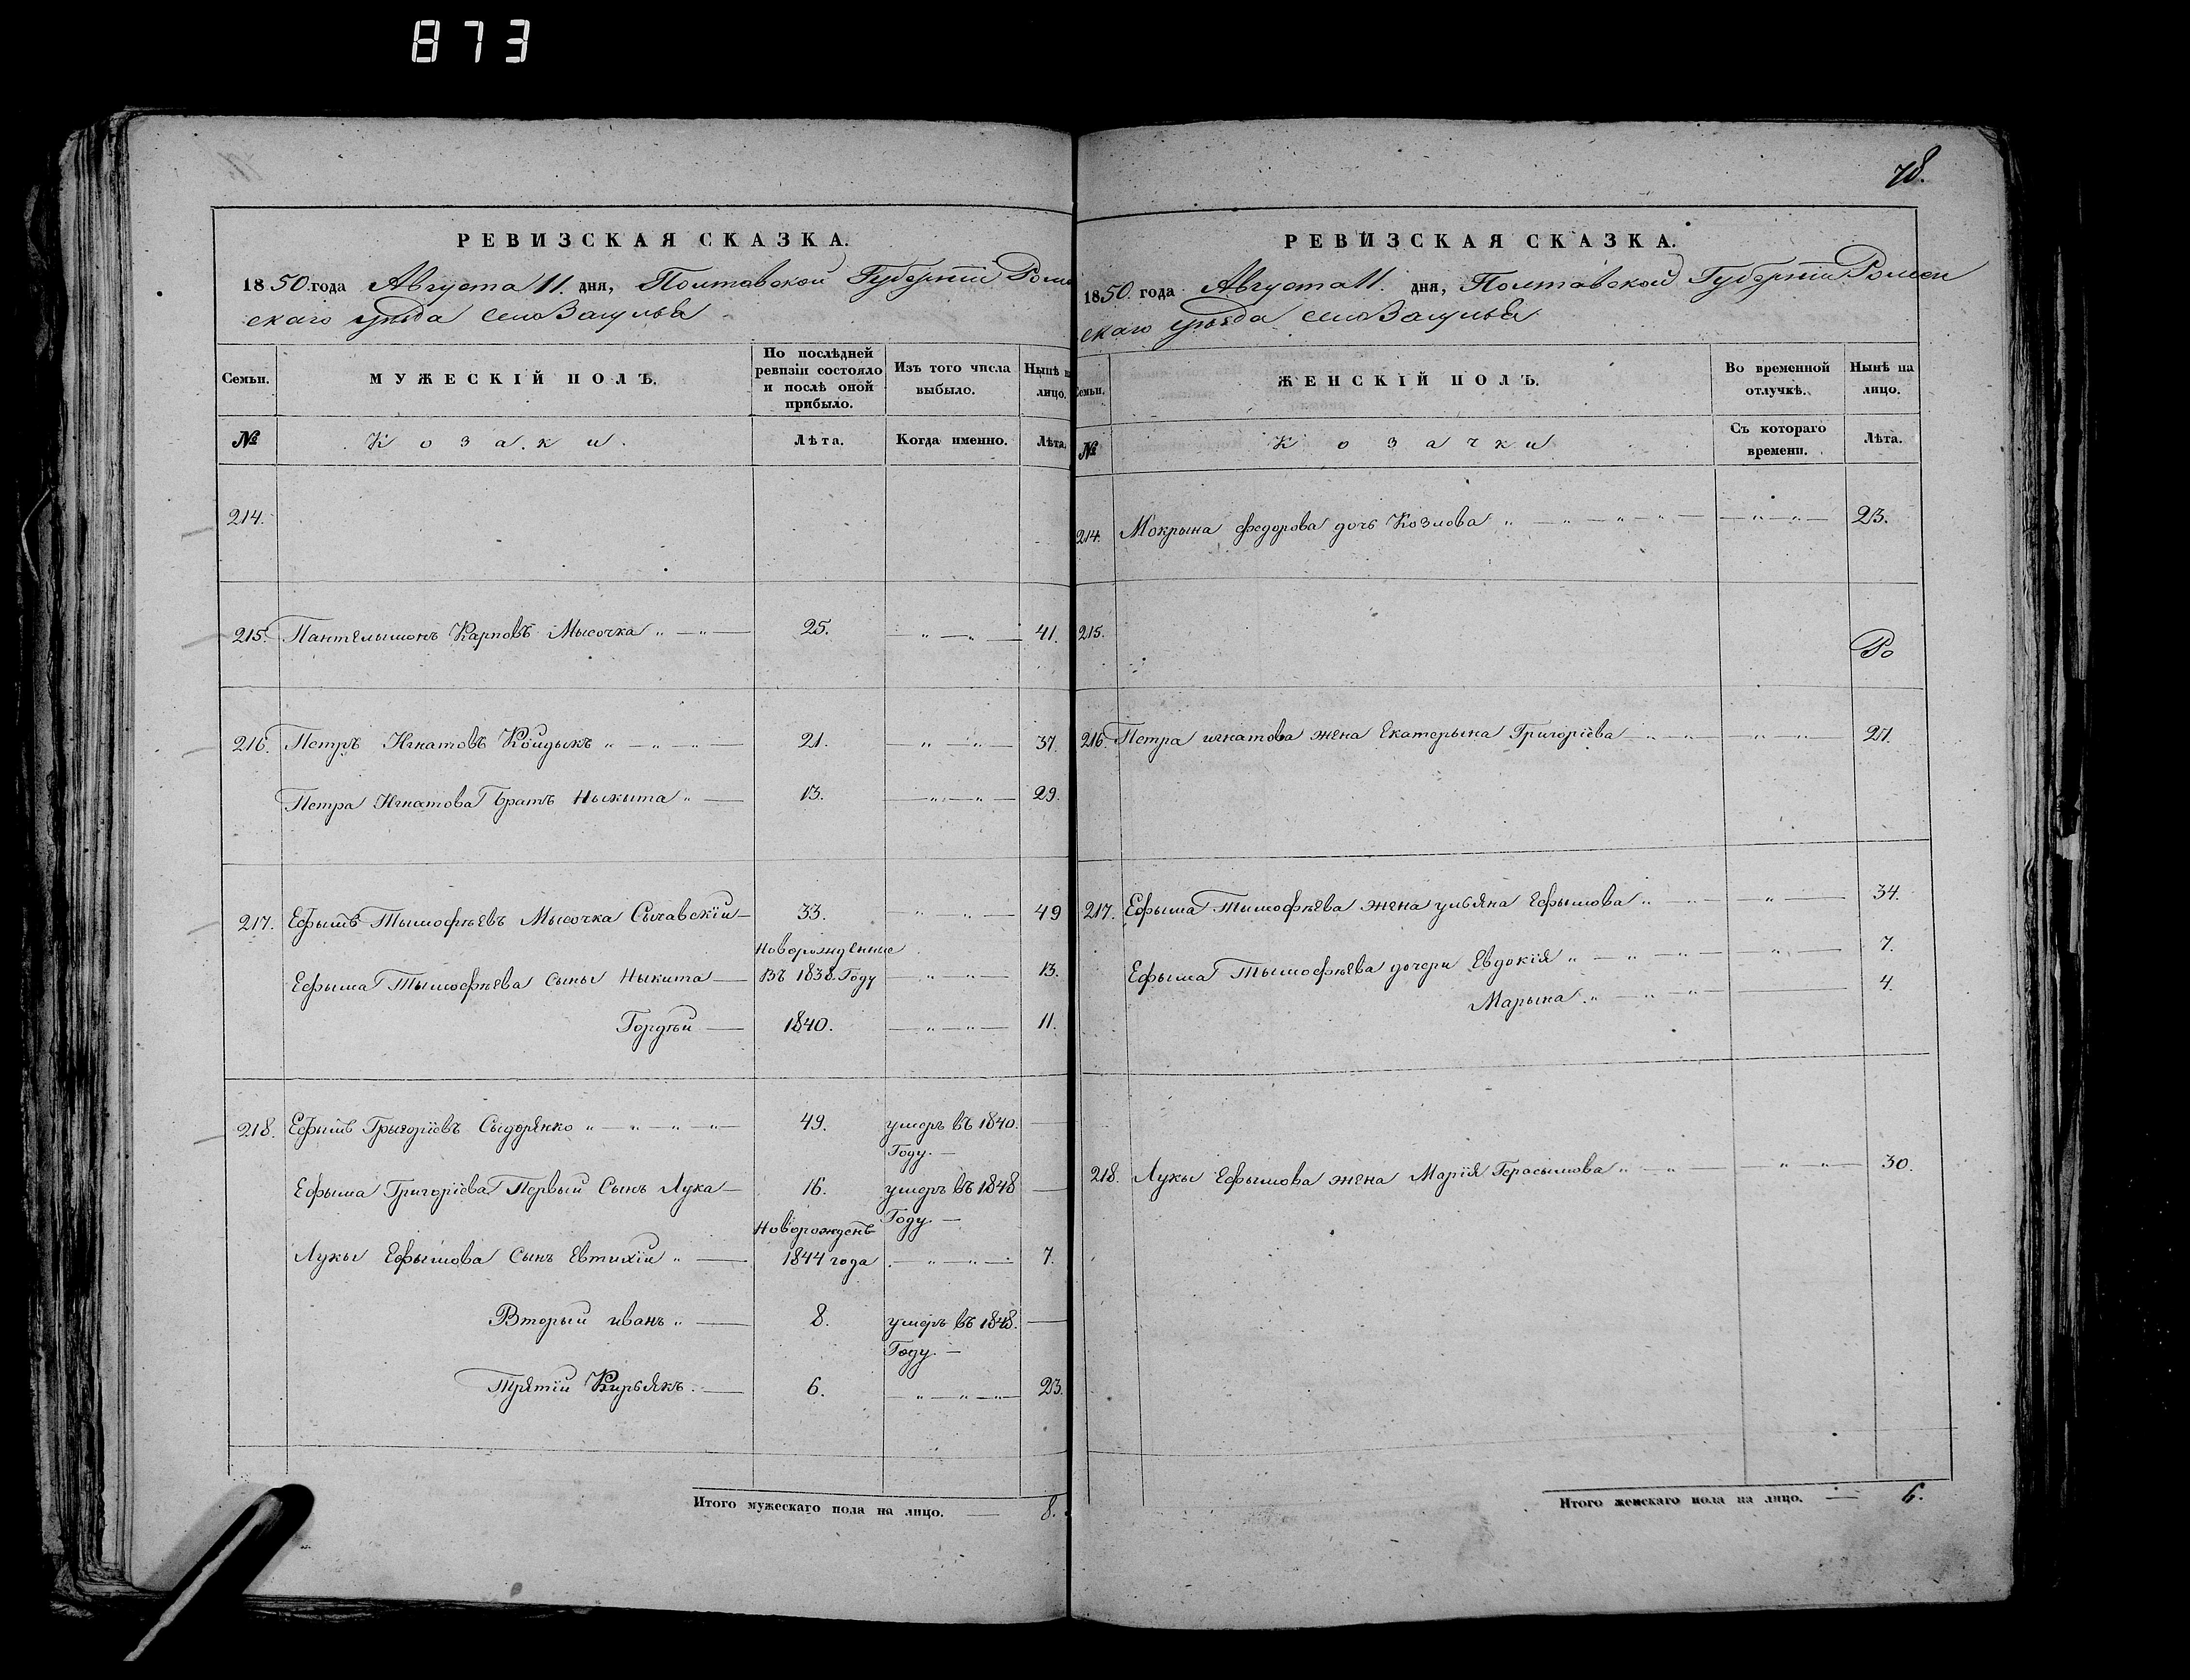 873
РЕВИЗСКАЯ СКАЗКА.
1850 года Августа 11 дня, Полтавской Губерніи Роме
скаго уѣзда село Засулья
Семьи.
МУЖЕСКІЙ ПОЛЪ.
По послѣдней
ревизіи состояло
и послѣ оной
прибыло.
Изъ того числа
выбыло.
Нынѣ н
лицо.
№
Козаки.
Лѣта.
Когда именно.
Лѣта.
214.
215. Пантелымонъ Карповъ Мысочка „ — „ — 25. — „ — „ — 41.
216. Петръ Игнатовъ Койдыкъ „ — „ — „ — 21. — „ — „ — 37.
Петра Игнатова братъ Ныкыта „ — 13. — „ — „ — 29.
217. Ефымъ Тымофѣевъ Мысочка Сычавскій — 33. — „ — „ — 49
Новорожденные
Ефыма Тымофѣева сыны Ныкита — Въ 1838. Году — „ — „ — 13.
Гордѣй — 1840. — „ — „ — 11.
218. Ефымъ Грыгоріевъ Сыдоренко „ — „ — „ — „ — 49. умеръ въ 1840. —
Году. —
Ефыма Григоріева Первый Сынъ Лука — 16. умеръ въ 1848 —
Году. —
Новорожденъ
Лукы Ефымова Сынъ Евтихій „ — 1844 года — „ — „ — 7.
Вторый иванъ „ — 8. умеръ въ 1848. —
Году. —
Третій Кирьякъ. — 6. — „ — „ — „ 23.
Итого мужескаго пола на лицо. — 8.
78.
РЕВИЗСКАЯ СКАЗКА.
1850. года Августа 11. дня, Полтавской Губерніи Ромен
скаго уѣзда село Засулья
Семьи.
ЖЕНСКІЙ ПОЛЪ.
Во временной
отлучкѣ.
Нынѣ на
лицо.
№
Козачки
Съ котораго
времени.
Лѣта.
214. Мокрына Федорова дочь Козлова „ — „ — „ — „ — — „ — „ — 23.
215.
216. Петра игнатова жена Екатерына Григоріева — „ — „ — „ — „ — 27.
217. Ефыма Тымофѣева жена ульяна Ефымова „ — „ — — „ — 34.
Ефыма Тымофѣева дочери Евдокія „ — „ — „ — — „ — 7.
Марына „ — „ — „ — — 4.
218. Лукы Ефымова жена Марія Герасымова „ — „ — — „ — „ — 30.
Итого женскаго пола на лицо. — 6.